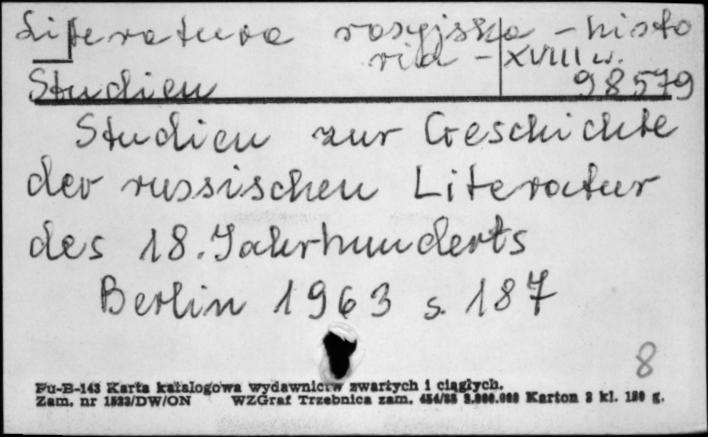 Literatura rosyjska - histo
ria - XVIII w.
Studien 98579
Studien zur Geschichte
der russischen Literatur
des 18. Jahrhunderts
Berlin 1963 s. 187
8
Pu-B-143 Karta katalogowa wydawnictw zwartych i ciągłych.
Zam. nr 1523/DW/ON WZGraf Trzebnica zam. Karton 2 kl. g.